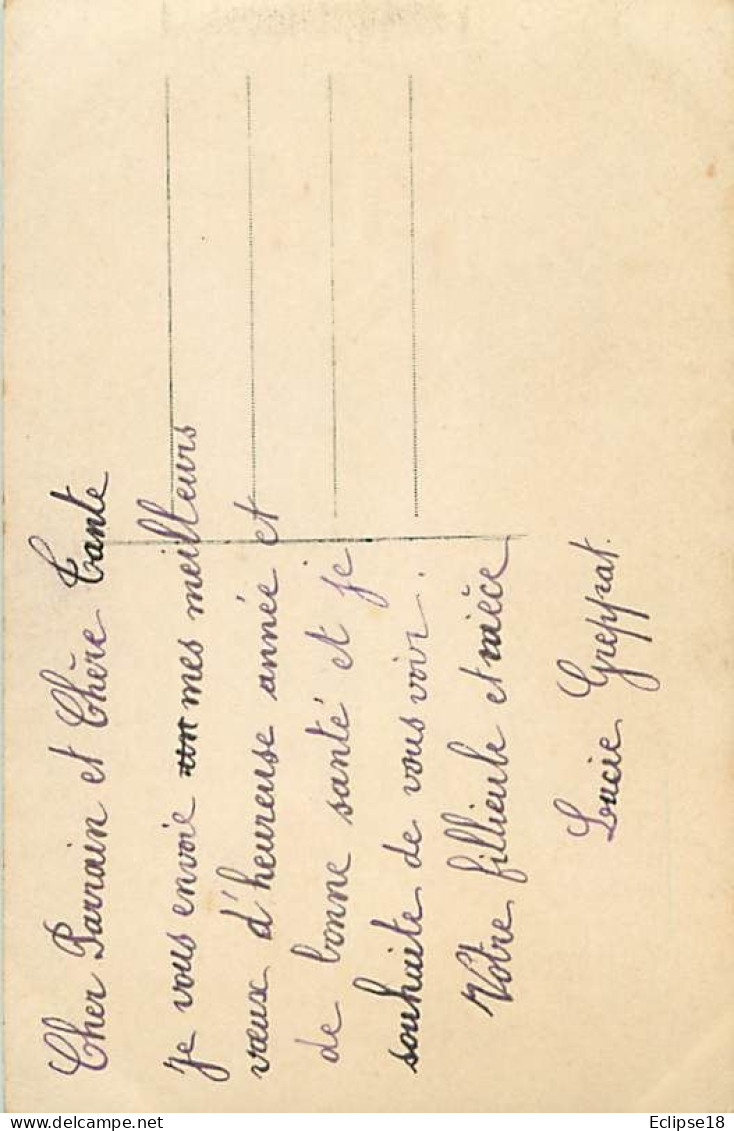 Cher Parrain et Chère Tante
Je vous envoie mes meilleurs
vœux d'heureuse année et
de bonne santé et je
souhaite de vous voir.
Votre fillieule et nièce
Lucie Greppat.
Eclipse18
www.delcampe.net